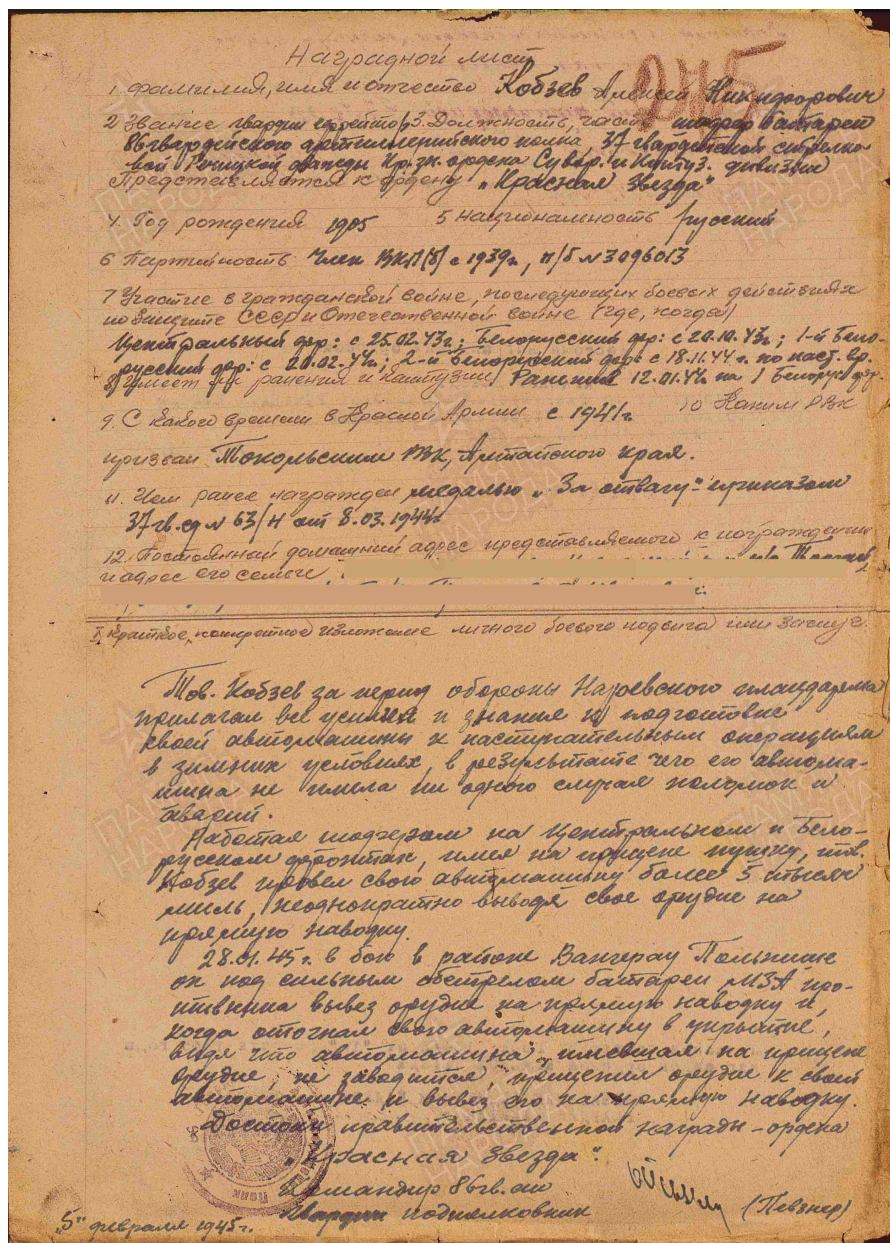 Наградной лист
245
1. Фамилия, имя и отчество Кобзев Алексей Никифорович
2 Звание гвардии ефрейтор 3. Должность, часть шофер батареи
86 гвардейского артиллерийского полка, 37 гвардейской стрелко-
вой Речицкой дважды Кр.зн. ордена Сувор. и Кутуз. дивизии
Представляется к ордену „Красная Звезда"
4. Год рождения 1905 5 Национальность русский
6 Партийность Член ВКП(б) с 1939г., п/б №3096013
7 Участие в гражданской войне, последующих боевых действиях
по защите СССР и Отечественной войне (где, когда)
Центральный фр: с 25.02.43г; Белорусский фр: с 20.10.43г; 1-й Бело-
русский фр: с 20.02.44г; 2-й Белорусский фр: с 18.11.44г. по наст. вр.
8) Имеет ли ранения и контузии Ранений 12.01.44г на 1 Белорус фр.
9. С какого времени в Красной Армии с 1941г. 10 Каким РВК
призван Токольским РВК, Алтайского края.
11. Чем ранее награжден медалью „За отвагу" приказом
37 гв. сд № 63/н от 8.03.1944г.
12. Постоянный домашний адрес представляемого к награждению
и адрес его семьи
I Краткое, конкретное изложение личного боевого подвига или заслуг.
Тов. Кобзев за период обороны Наревского плацдарма
прилагал все усилия и знания к подготовке
своей автомашины к наступательным операциям
в зимних условиях, в результате чего его автома-
шина не имела ни одного случая поломок и
аварий.
Работая шофером на Центральном и Бело-
русском фронтах, имея на прицепе пушку, тов.
Кобзев провел свою автомашину более 5 тысяч
миль, неоднократно выводя свое орудие на
прямую наводку.
28.01.45г. в бою в районе Вангерау Польши
он под сильным обстрелом батареи МЗА про-
тивника вывез орудие на прямую наводку и,
когда отогнал свою автомашину в укрытие,
видя что автомашина, имевшая на прицепе
орудие, не заводится прицепил орудие к своей
автомашине и вывез его на прямую наводку.
Достоин правительственной награды - ордена
„Красная Звезда".
Командир 86 гв. ап
Гвардии подполковник (Певзнер)
„5" февраля 1945г.